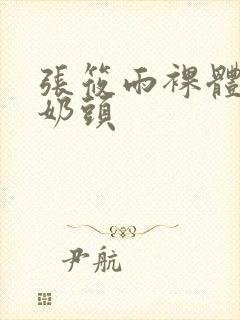 張筱雨裸體
奶頭
尹航